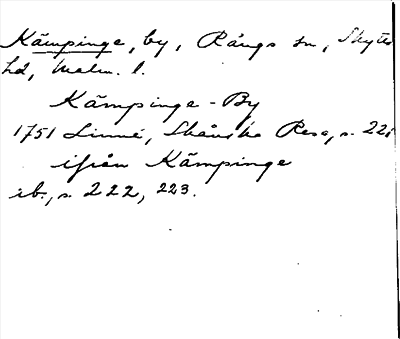 Kämpinge, by, Rängs sn, Skytts
hd, Malm. l.
Kämpinge-By
1751 Linné, Skånska Resa, s. 221
ifrån Kämpinge
ib., s. 222, 223.